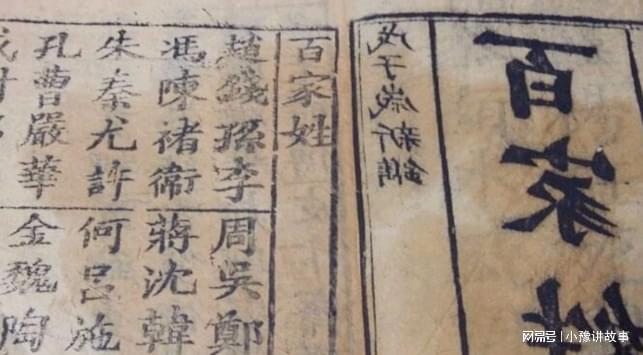 百家
戊子歲新鐫
百家姓
趙錢孫李 周吳鄭
馮陳褚衛 蔣沈韓
朱秦尤許 何呂施
孔曹嚴華 金魏陶
网易号 | 小豫讲故事